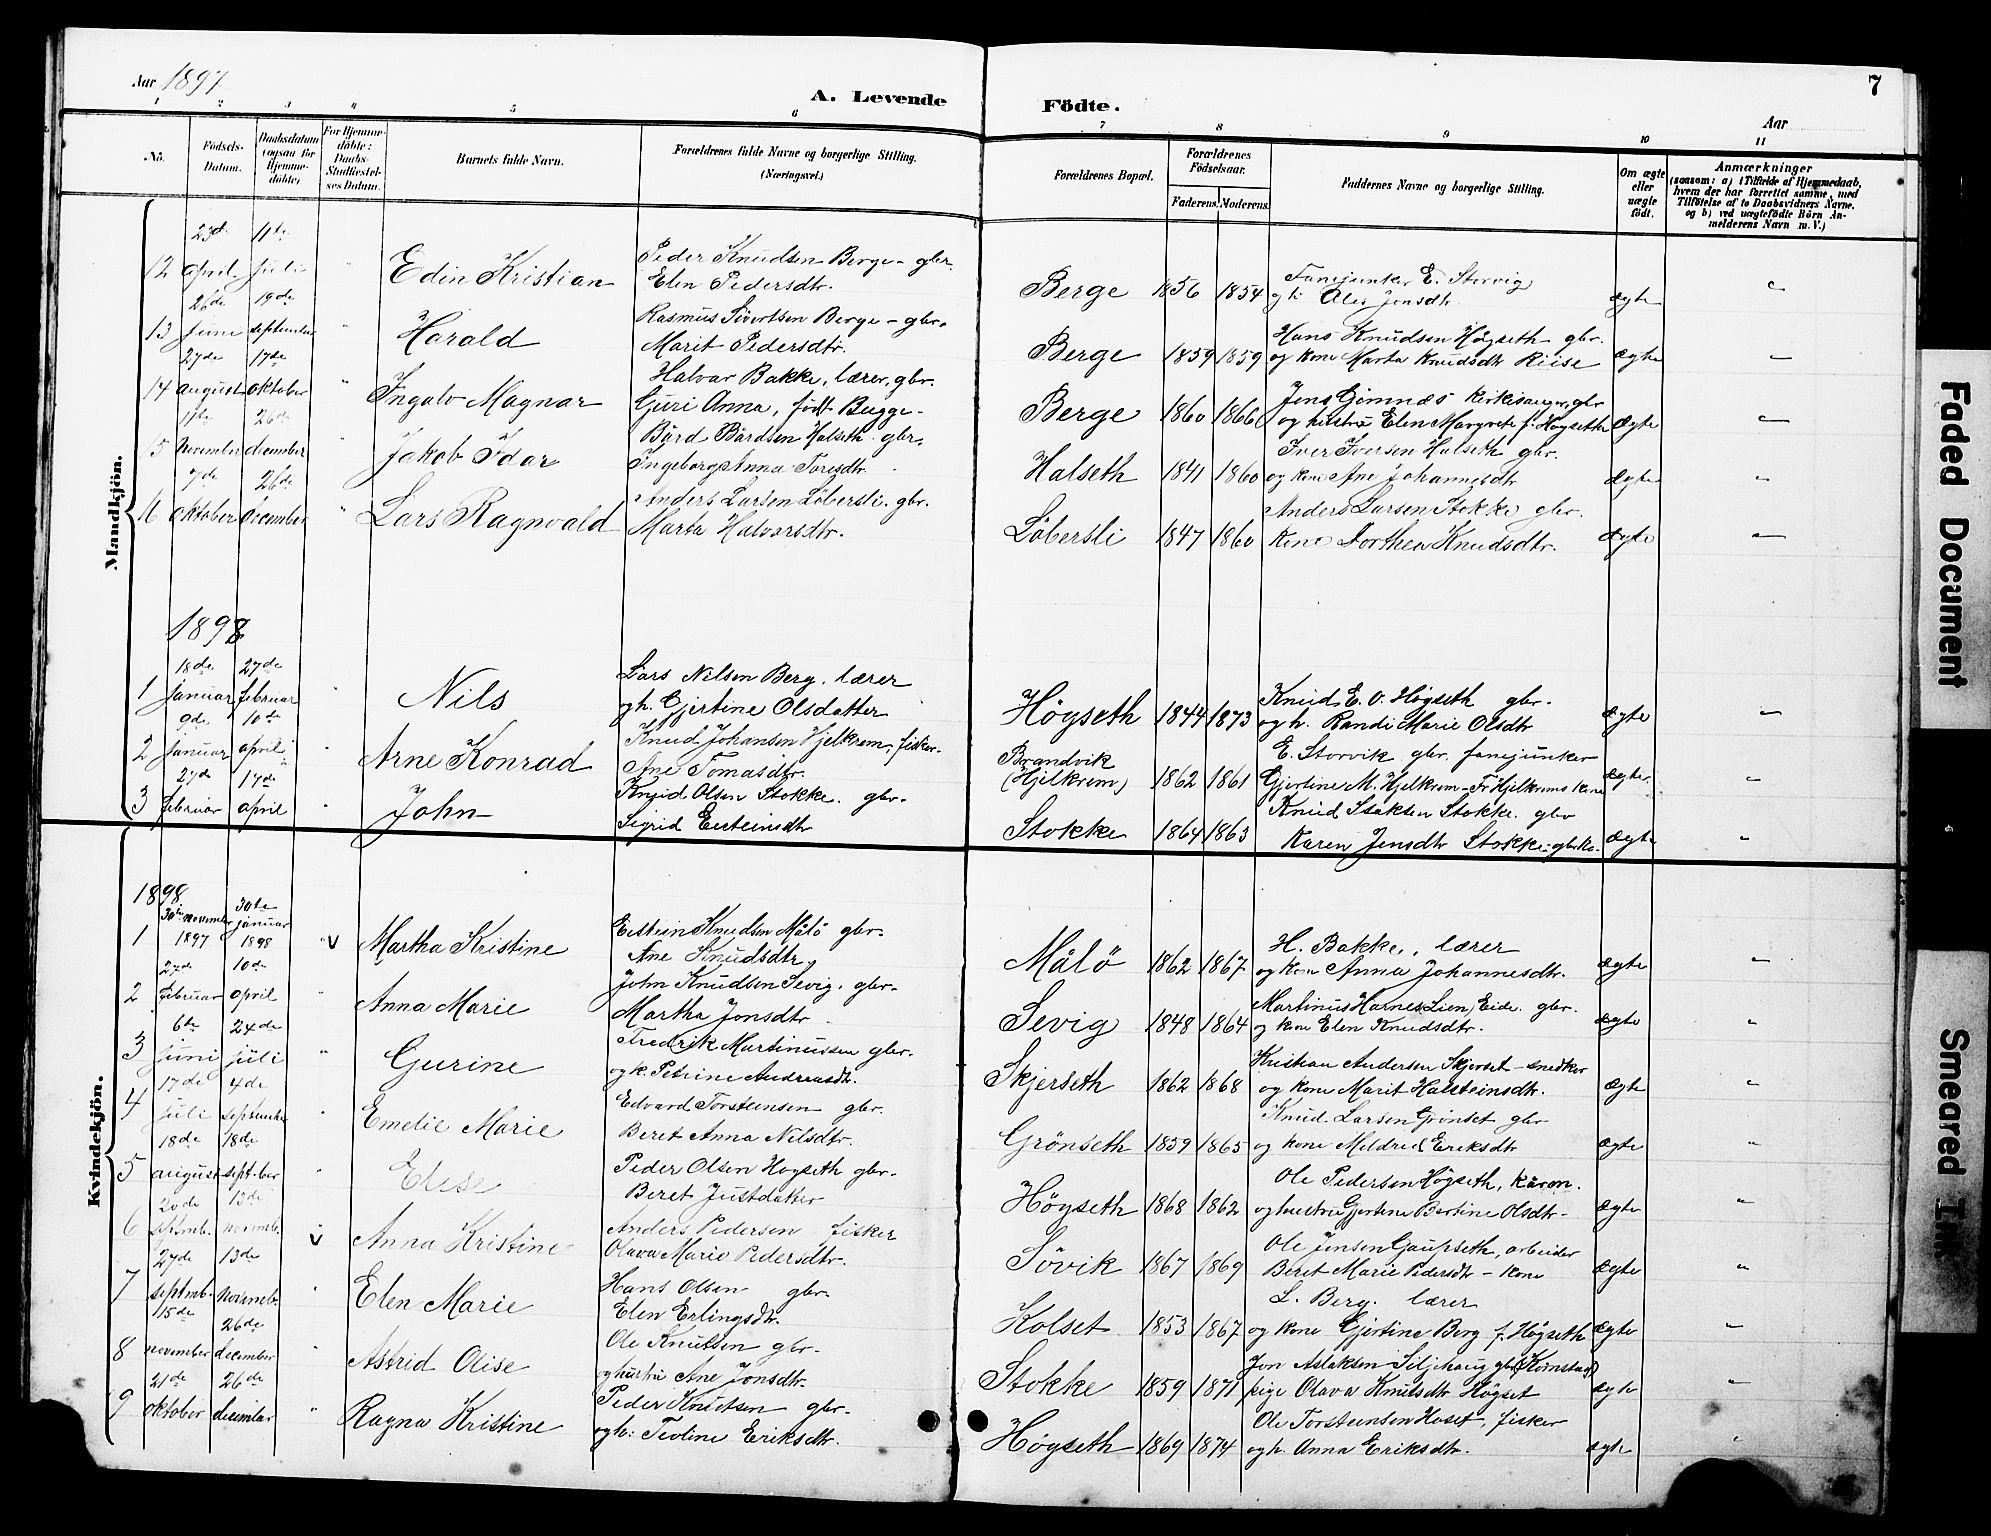 Aar 1897
A. Levende Födte.
7
Aar
1 2 3 4 5 6 7 8 9 10 11
No.
Födsels-Datum.
Daabsdatum (ogsaa for Hjemmedöbte)
For Hjemmedöbte: Daabs-Stadfæstelses Datum.
Barnets fulde Navn.
Forældrenes fulde Navne og borgerlige Stilling. (Næringsvei.)
Forældrenes Bopæl.
Forældrenes Födselsaar.
Faderens. Moderens.
Faddernes Navne og borgerlige Stilling.
Om ægte eller uægte födt.
Anmærkninger (saasom: a) i Tilfælde af Hjemmedaab, hvem der har forrettet samme, med Tilföielse af to Daabsvidners Navne, og b) ved uægtefödte Börn Anmelderens Navn m. V.)
Mandkjön.
12 23de april 11te juli " Edin Kristian Peder Knudsen Berge - gbr. Elen Pedersdtr. Berge 1856 1854 Fanejunker E. Storvig gh. Ales Jonsdtr. ægte "
13 26de Juni 19de september " Harald Rasmus Sivertsen Berge - gbr. Marit Pedersdtr. Berge 1859 1859 Hans Knudsen Högseth gbr. og kone Marta Knudsdtr Riise ægte "
14 27de august 17de oktober " Ingalv Magnar Halvar Bakke, lærer, gbr. Guri Anna, født Bugge - Berge 1860 1866 Jens Gimnæs kirkesanger, gbr og hustru Elen Margrete f. Høgseth ægte "
15 11te november 26de december " Jakob Idar Bård Bårdsen Halseth gbr. Ingeborg Anna Toresdtr. Halseth 1841 1860 Iver Iversen Halseth gbr. og kone Ane Johannesdtr ægte "
16 7de oktober 26de december " Lars Ragnvald Anders Larsen Löbersli. gbr. Marta Halvarsdtr. Löbersli 1847 1860 Anders Larsen Stokke gbr. kone Dorthea Knudsdtr. ægte "
1898
1 18de Januar 27de februar " Nils Lars Nilsen Berg, lærer gh. Gjertine Olsdatter Högseth 1844 1873 Knud E. O. Högseth gbr. og h. Randi Marie Olsdtr ægte "
2 9de januar 10de april " Arne Konrad Knud Johansen Hjelkrem, fisker. Ane Tomasdtr. Brandvik (Hjelkrem) 1862 1861 E. Storvik gbr. fanejunker Gjertine M. Hjelkrem - Fr Hjelkrems kone ægte "
3 27de februar 17de april " John Knud Olsen Stokke. gbr. Sigrid Eisteinsdtr Stokke 1864 1863 Knud Slaksen Stokke. gbr Karen Jensdtr Stokke - gbrko. ægte "
Kvindekjön.
1898
1 30te november 1897 30te januar 1898 "v Martha Kristine Eistein Knudsen Målö gbr. Ane Knudsdtr. Målö 1862 1867 H. Bakke, lærer og kone Anna Johannesdtr. ægte "
2 27de februar 10de april " Anna Marie John Knudsen Sevig. gbr. Martha Jonsdtr Sevig 1848 1864 Martinus Harnes Lien, Eide. gbr. og kone Elen Knudsdtr. ægte "
3 6te juni 24de juli " Gurine Fredrik Martinussen gbr. og k. Petrine Andreasdtr. Skjerseth 1862 1868 Kristian Andersen Skjerset - snedker og kone Marit Halsteinsdtr. ægte "
4 17de juli 4de september " Emelie Marie Edvard Torsteinsen gbr. Beret Anna Nilsdtr. Grönseth 1859 1865 Knud Larsen Grönset gbr og kone Meldred Eriksdtr ægte "
5 18de august 18de septber " Elise Peder Olsen Hogseth gbr. Beret Justdatter Högseth 1868 1862 Ole Pedersen Högseth, kårm. og hustru Gjertine Bertine Olsdtr. ægte "
6 20de septmb. 13de novemb. v Anna Kristine Anders Pedersen fisker Olava Marie Pedersdtr. Sövik 1867 1869 Ole Jensen Gaupseth, arbeider Beret Marie Pedersdtr - kone ægte "
7 27de septmb. 13de novemb. " Elen Marie Hans Olsen gbr. Elen Erlingsdtr. Kolset 1853 1867 L. Berg. lærer og kone Gjertine Berg f. Högseth ægte "
8 15de november 26de december " Astrid Olise Ole Knutsen gbr. og hustru Ane Jonsdtr. Stokke 1859 1871 Jon Aslaksen Siljehaug gbr (Kornstad) pige Olava Knutsdtr Högset ægte "
9 21de oktober 26de december " Ragna Kristine Peder Knutsen gbr. og h: Teoline Eriksdtr. Högseth 1869 1874 Ole Torsteinsen Hoset, fisker og h. Anna Eriksdtr. ægte "
Faded Document
Smeared Ink